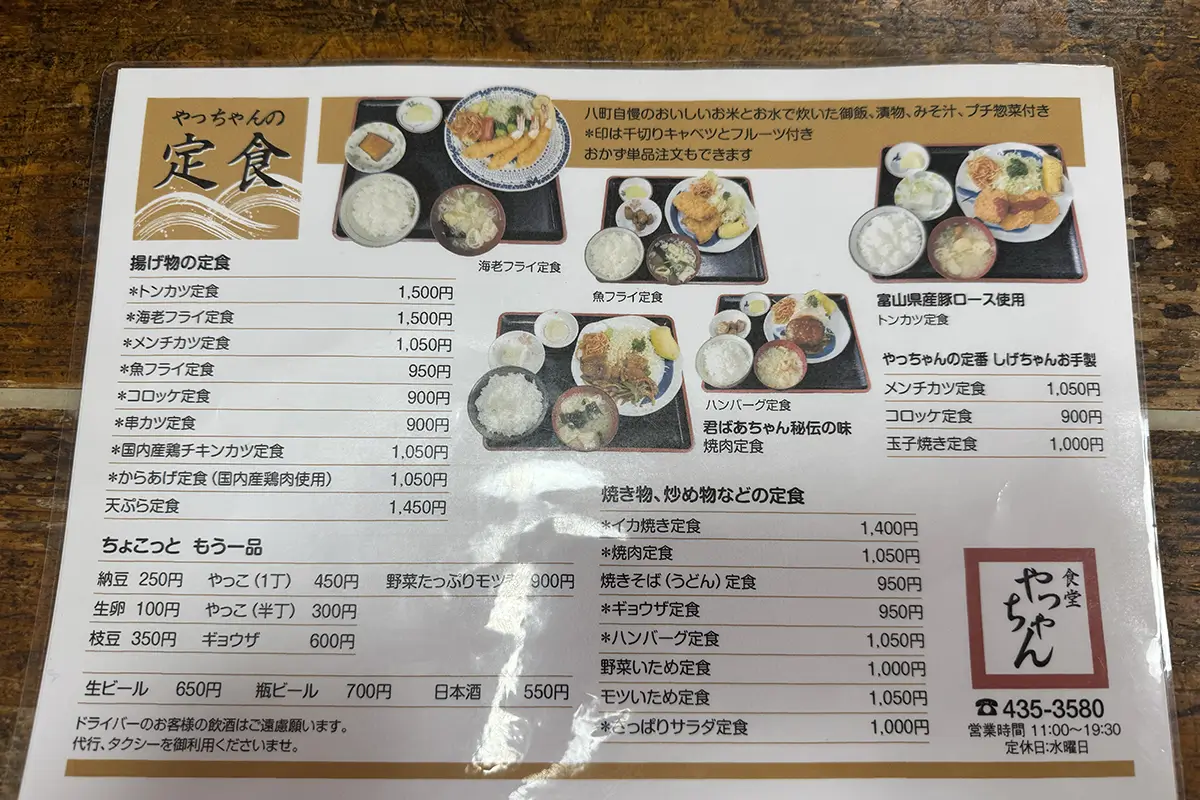 やっちゃんの
定食
八町自慢のおいしいお米とお水で炊いた御飯、漬物、みそ汁、プチ惣菜付き
*印は千切りキャベツとフルーツ付き
おかず単品注文もできます
海老フライ定食
魚フライ定食
富山県産豚ロース使用
トンカツ定食
ハンバーグ定食
君ばあちゃん秘伝の味
焼肉定食
揚げ物の定食
*トンカツ定食 1,500円
*海老フライ定食 1,500円
*メンチカツ定食 1,050円
*魚フライ定食 950円
*コロッケ定食 900円
*串カツ定食 900円
*国内産鶏チキンカツ定食 1,050円
*からあげ定食(国内産鶏肉使用) 1,050円
天ぷら定食 1,450円
やっちゃんの定番 しげちゃんお手製
メンチカツ定食 1,050円
コロッケ定食 900円
玉子焼き定食 1,000円
ちょこっと もう一品
納豆 250円 やっこ(1丁) 450円 野菜たっぷりモツ 900円
生卵 100円 やっこ(半丁) 300円
枝豆 350円 ギョウザ 600円
生ビール 650円 瓶ビール 700円 日本酒 550円
ドライバーのお客様の飲酒はご遠慮願います。
代行、タクシーを御利用くださいませ。
焼き物、炒め物などの定食
*イカ焼き定食 1,400円
*焼肉定食 1,050円
焼きそば(うどん)定食 950円
*ギョウザ定食 950円
*ハンバーグ定食 1,050円
野菜いため定食 1,000円
モツいため定食 1,050円
*さっぱりサラダ定食 1,000円
食堂
やっちゃん
☎435-3580
営業時間 11:00〜19:30
定休日:水曜日